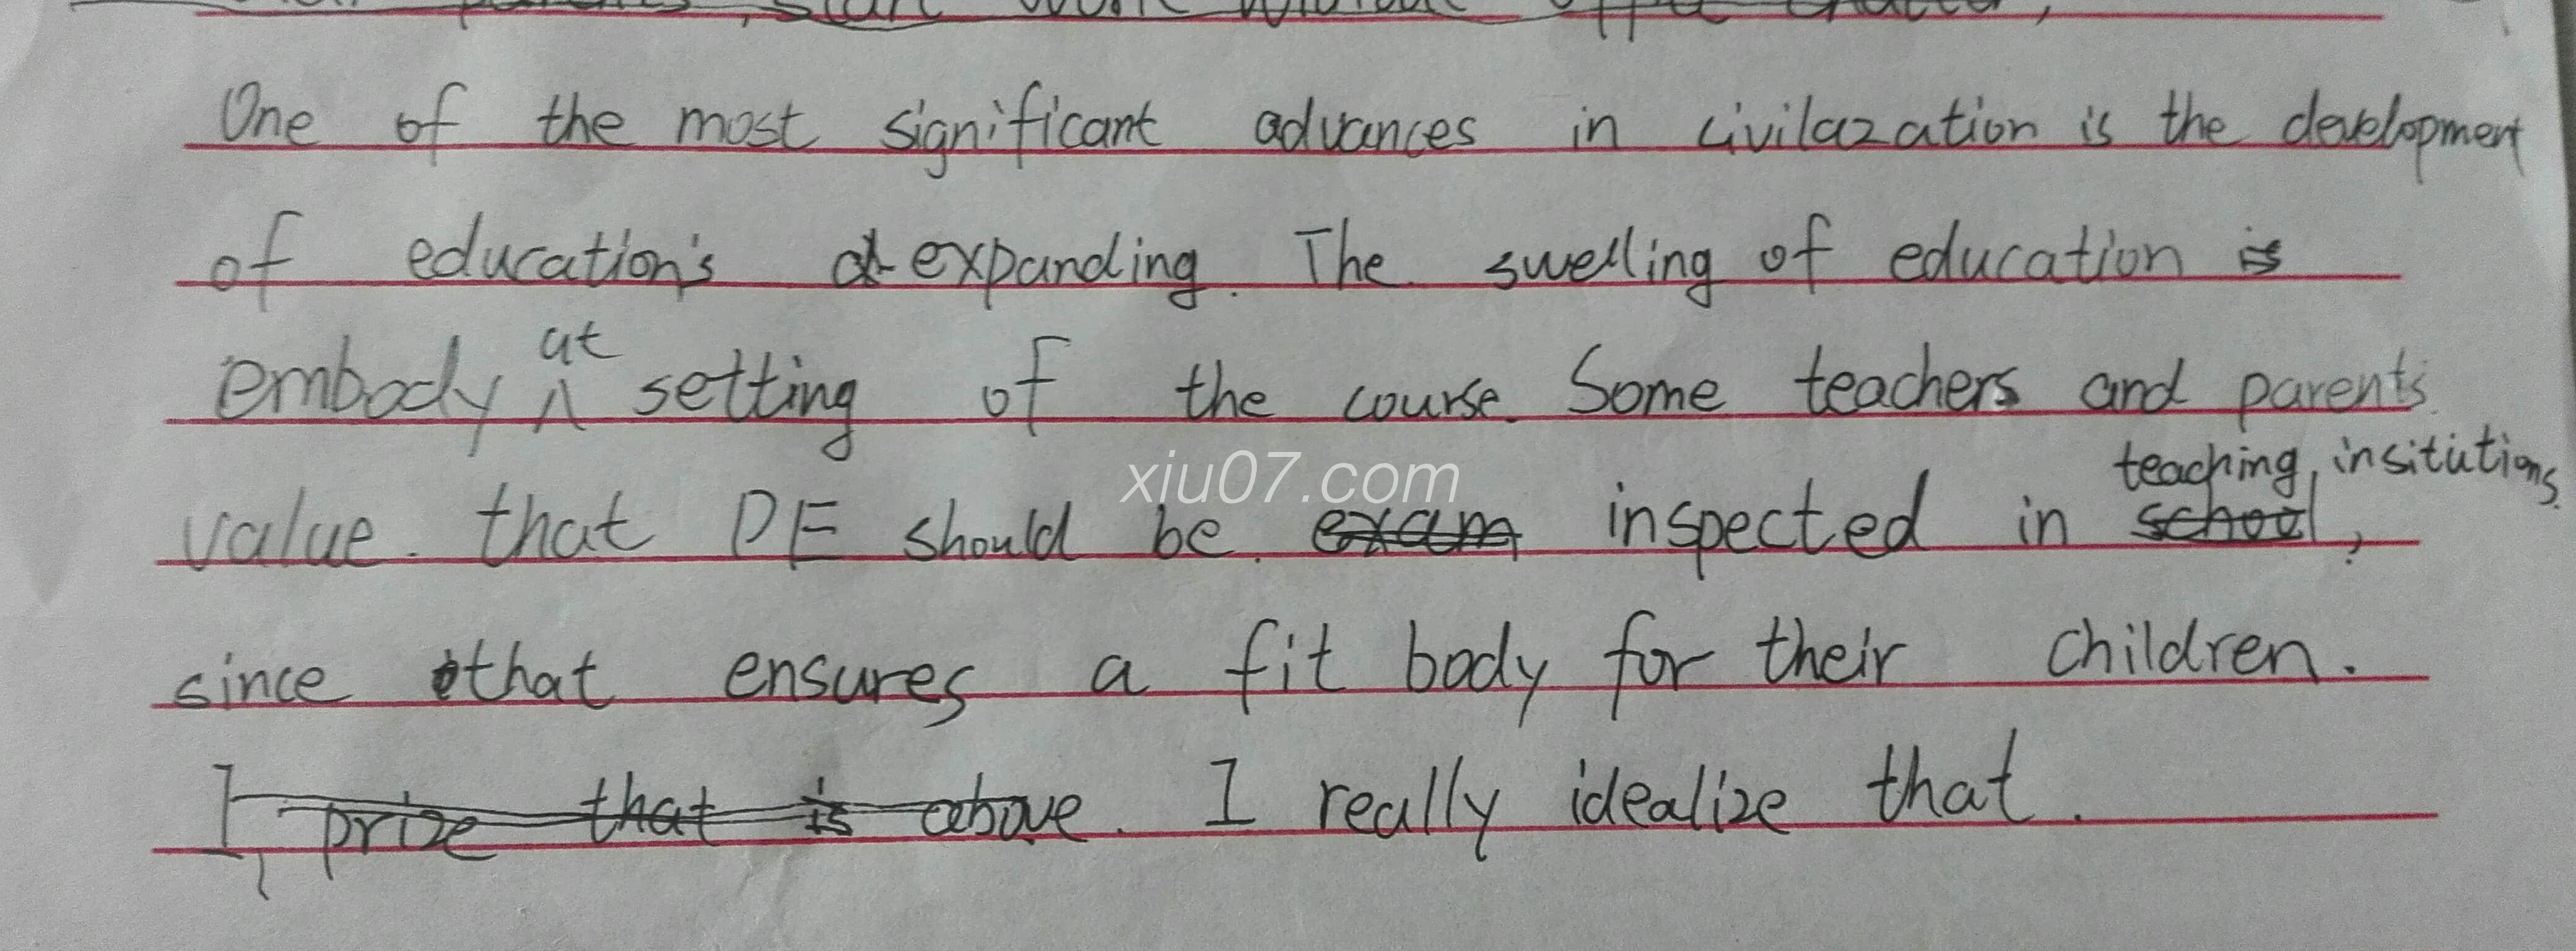 One of the most significant advances in civilazation is the development
of education's expanding. The swelling of education is
embody at setting of the course. Some teachers and parents
value that PE should be inspected in teaching insitutions,
xiu07.com
since that ensures a fit body for their children.
I prize that is above. I really idealize that.